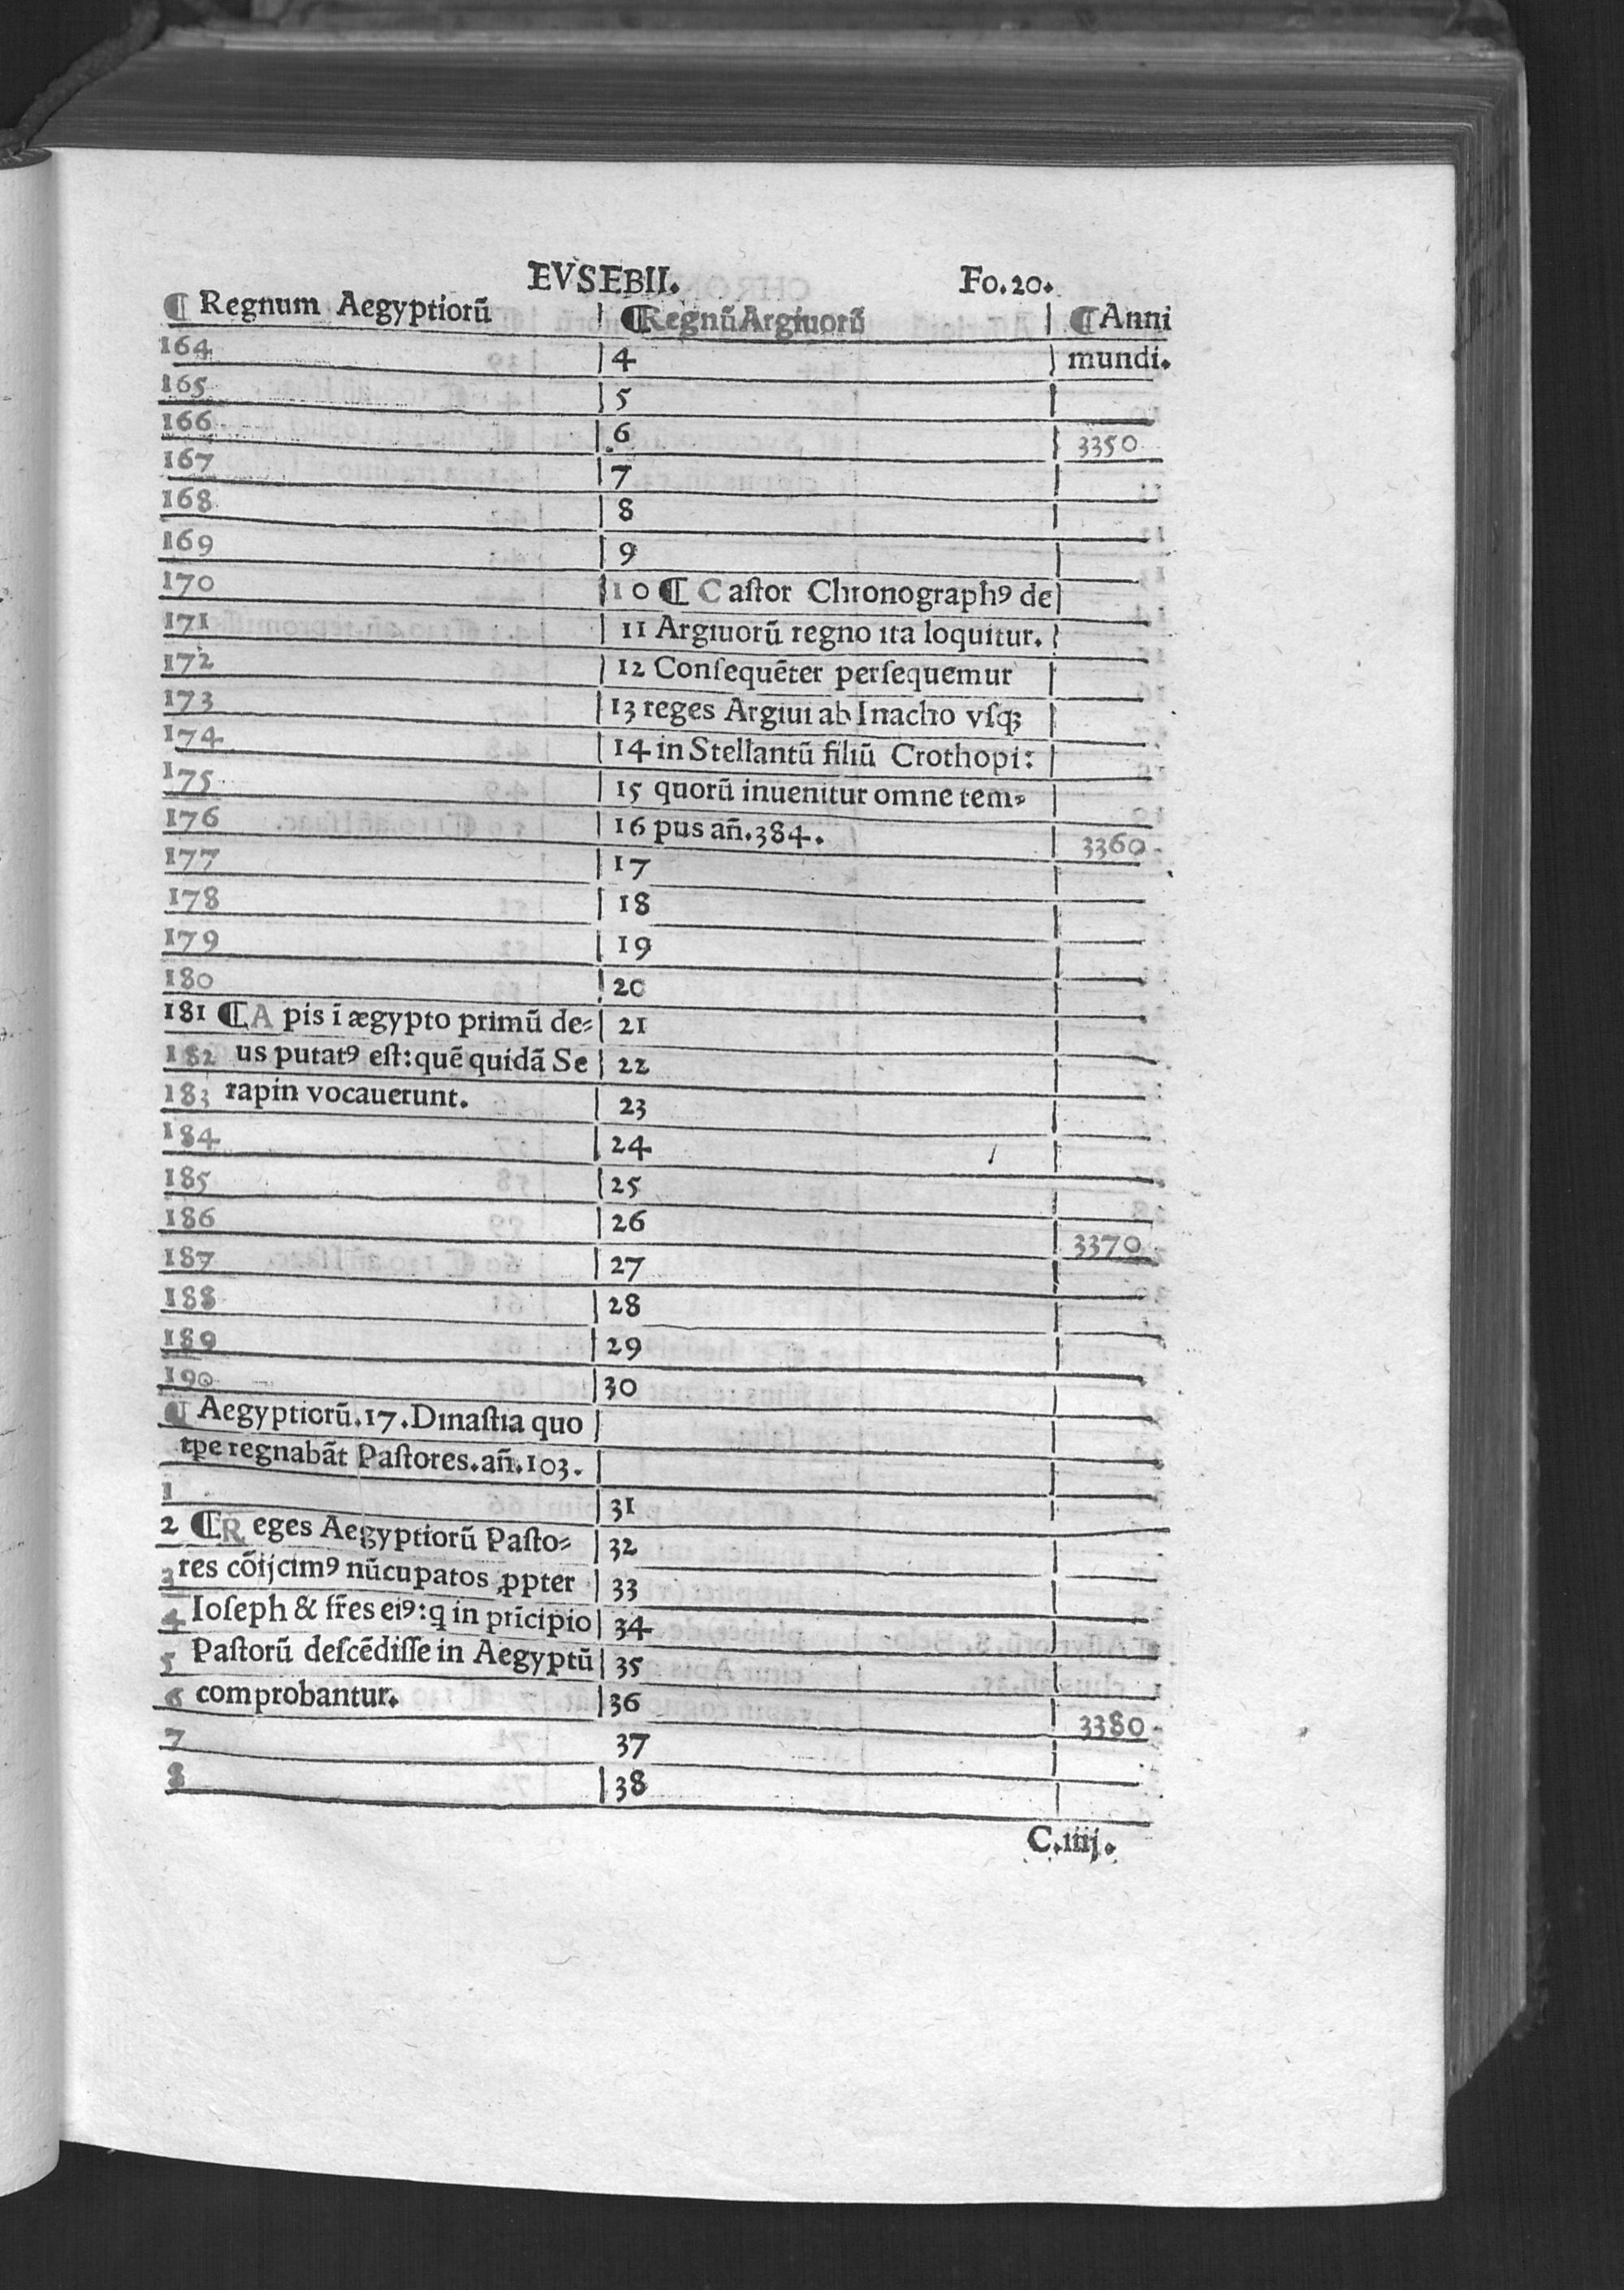 EVSEBII. Fo.20.
¶ Regnum Aegyptiorū | ¶Regnū Argiuorū | ¶ Anni
164 | 4 | mundi.
165 | 5
166 | 6 | 3350
167 | 7
168 | 8
169 | 9
170 | 10 ¶ Caſtor Chronographꝰ de
171 | 11 Argiuorū regno ita loquitur.
172 | 12 Conſequēter perſequemur
173 | 13 reges Argiui ab Inacho vſqꝫ
174 | 14 in Stellantū filiū Crothopi:
175 | 15 quorū inuenitur omne tem⸗
176 | 16 pus añ.384. | 3360
177 | 17
178 | 18
179 | 19
180 | 20
181 ¶ Apis ī ægypto primū de⸗ | 21
182 us putatꝰ eſt:quē quidā Se | 22
183 rapin vocauerunt. | 23
184 | 24
185 | 25
186 | 26 | 3370
187 | 27
188 | 28
189 | 29
190 | 30
¶ Aegyptiorū.17.Dinaſtia quo
tpe regnabāt Paſtores.añ.103.
1 | 31
2 ¶ Reges Aegyptiorū Paſto⸗ | 32
3 res cōijcimꝰ nūcupatos ꝓpter | 33
4 Ioſeph & fr̄es eiꝰ:q in prīcipio | 34
5 Paſtorū deſcēdiſſe in Aegyptū | 35
6 comprobantur. | 36 | 3380
7 37
8 | 38
C.iiij.